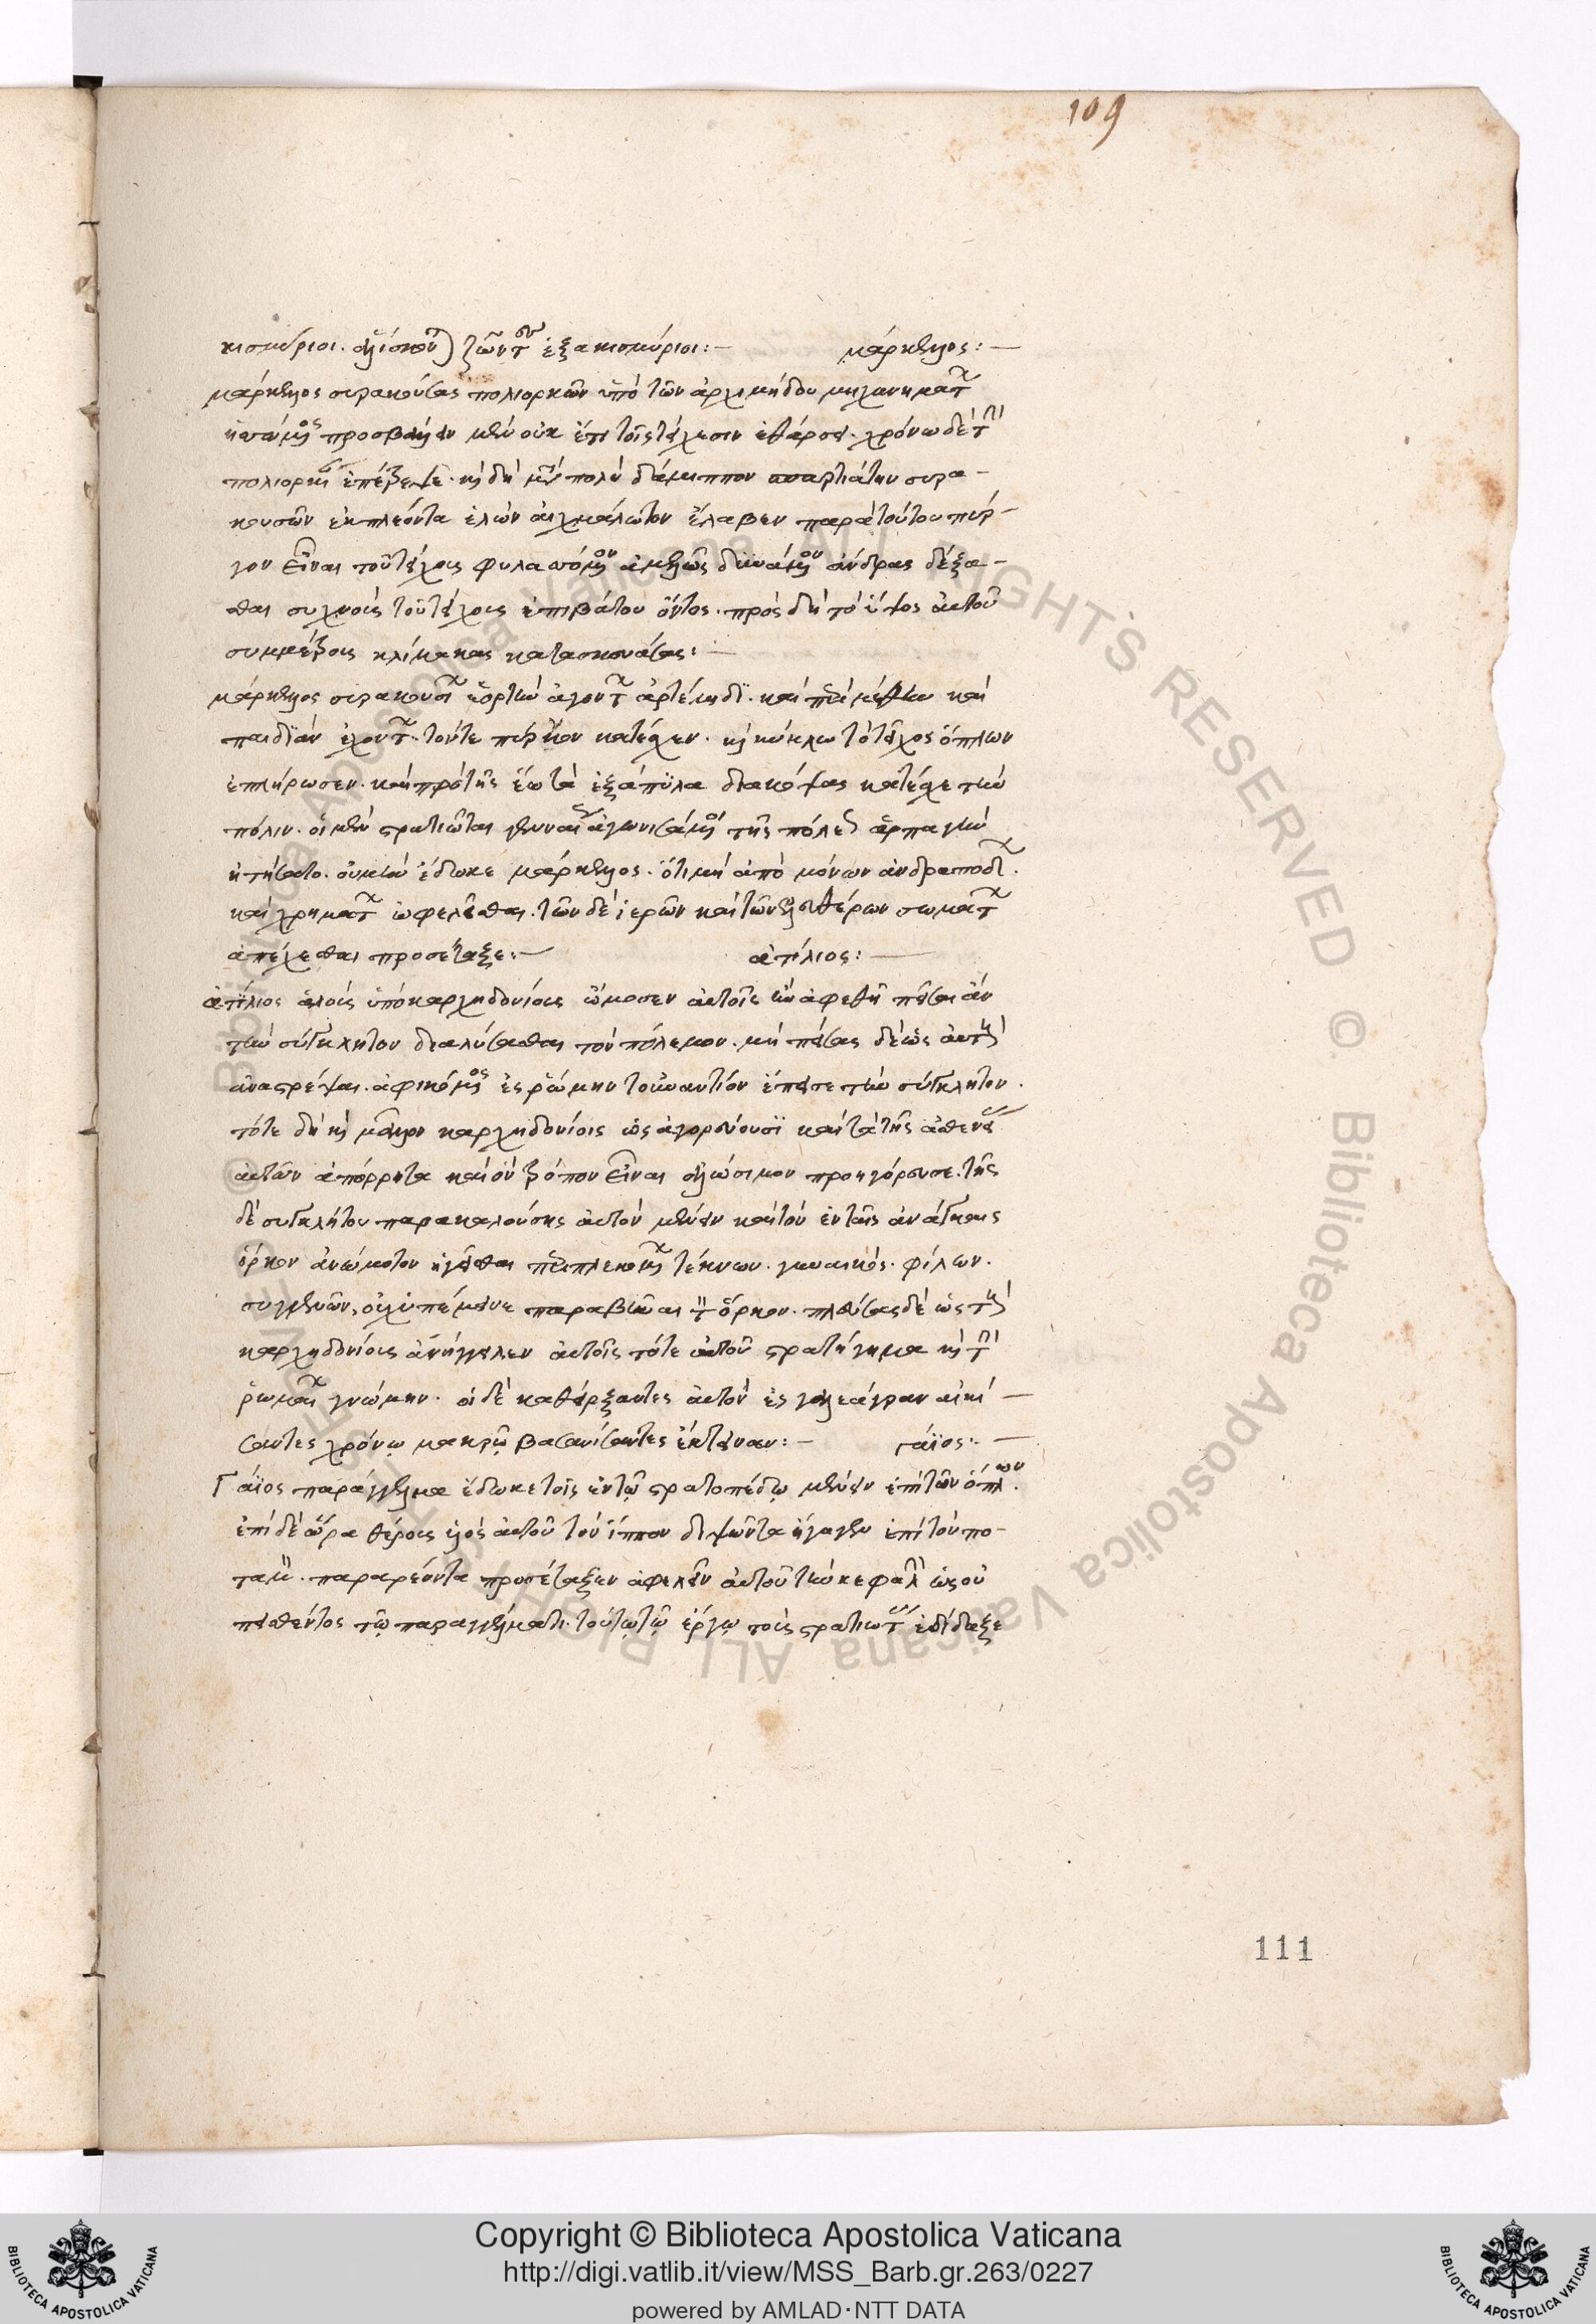 109
κισμύριοι. ἁλίσκονται ζῶντες ἑξακισμύριοι:— μάρκελλος:—
μάρκελλος συρακούσας πολιορκῶν ὑπὸ τῶν ἀρχιμήδου μηχανημάτων
προσβάλλειν μὲν οὐκ ἔτι τοῖς τείχεσιν ἐθάρσει. χρόνω δὲ τὴν
πολιορκίαν ἐπέτρεψε. καὶ δὴ μετὰ πολὺ δάμιππον σπαρτιάτην συρα-
κουσῶν ἐκπλέοντα ἑλὼν αἰχμάλωτον ἔλαβεν παρὰ τούτου πύρ-
γον εἶναι τοῦ τείχους φυλαττόμενον ἀμελῶς δυνάμενον ἄνδρας δέξα-
σθαι συχνοὺς τοῦ τείχους ἐπιβάτου ὄντος. πρὸς δὴ τὸ ὕψος αὐτοῦ
συμμέτρους κλίμακας κατασκευάσας:—
μάρκελλος συρακουσίων ἑορτὴν ἀγόντων ἀρτέμιδι. καὶ περὶ μέθην καὶ
παιδϊὰν ἐχόντων. τόν τε πύργον κατέσχεν. καὶ κύκλω τὸ τεῖχος ὅπλων
ἐπλήρωσεν. καὶ πρὸ τῆς ἕω τὰ ἑξάπυλα διακόψας κατέσχε τὴν
πόλιν. οἱ μὲν στρατιῶται γενναίως ἀγωνισάμενοι τῆς πόλεως ἁρπαγὴν
ἠτήσαντο. οὐ μὴν ἔδωκε μάρκελλος. ὅτι μὴ ἀπὸ μόνων ἀνδραπόδων.
καὶ χρημάτων ὠφελεῖσθαι. τῶν δὲ ἱερῶν καὶ τῶν ἐλευθέρων σωμάτων
ἀπέχεσθαι προσέταξε:— ἀτίλιος:—
ἀτίλιος ἁλοὺς ὑπὸ καρχηδονίοις ὤμοσεν αὐτοῖς ἢν ἀφεθῆ πεῖσαι ἂν
τὴν σύγκλητον διαλύσασθαι τὸν πόλεμον. μὴ πείσας δὲ ὡς αὐτοὺς
ἀναστρέψαι. ἀφικόμενος ἐς ῥώμην τοὐναντίον ἔπεισε τὴν σύγκλητον.
τότε δὴ καὶ μᾶλλον καρχηδονίοις ὡς ἀγορεύουσϊ καὶ τὰ τῆς ἀσθενείας
αὐτῶν ἀπόρρητα καὶ ὃν τρόπον εἶναι ἁλώσιμον προηγόρευσε. τῆς
δὲ συγκλήτου παρακαλούσης αὐτὸν μένειν καὶ τὸν ἐν ταῖς ἀνάγκαις
ὅρκον ἀνώμοτον ἡγεῖσθαι περιπλεκομένων τέκνων. γυναικός. φίλων.
συγγενῶν, οὐχ ὑπέμεινε παραβῆναι τὸν ὅρκον. πλεύσας δὲ ὡς τοὺς
καρχηδονίους ἀνήγγειλεν αὐτοῖς τότε αὐτοῦ στρατήγημα καὶ τὴν
ῥωμαίων γνώμην. οἱ δὲ καθείρξαντες αὐτὸν ἐς γαλεάγραν αἰκί-
σαντες χρόνῳ μακρῷ βασανίσαντες ἔκτειναν:— γάϊος:—
Γάϊος παράγγελμα ἔδωκε τοῖς ἐν τῷ στρατοπέδῳ μένειν ἐπὶ τῶν ὅπλων.
ἐπὶ δὲ ὥρα θέρους υἱὸς αὐτοῦ τὸν ἵππον διψῶντα ἤγαγεν ἐπὶ τὸν πο-
ταμὸν. παραρέοντα προσέταξεν ἀφελεῖν αὐτοῦ τὴν κεφαλὴν ὡς οὐ
πεισθέντος τῷ παραγγέλματι. τούτῳ τῷ ἔργῳ τοὺς στρατιώτας ἐδίδαξε
111
Copyright © Biblioteca Apostolica Vaticana
http://digi.vatlib.it/view/MSS_Barb.gr.263/0227
powered by AMLAD·NTT DATA